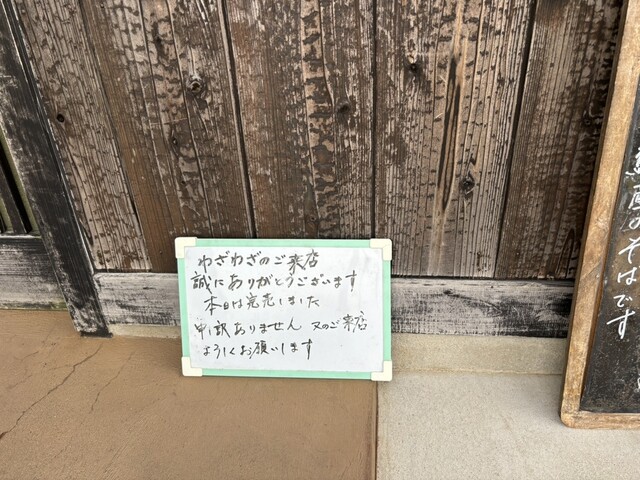 わざわざのご来店
誠にありがとうございます
本日は完売しました
申し訳ありません 又のご来店
よろしくお願いします
のそばです